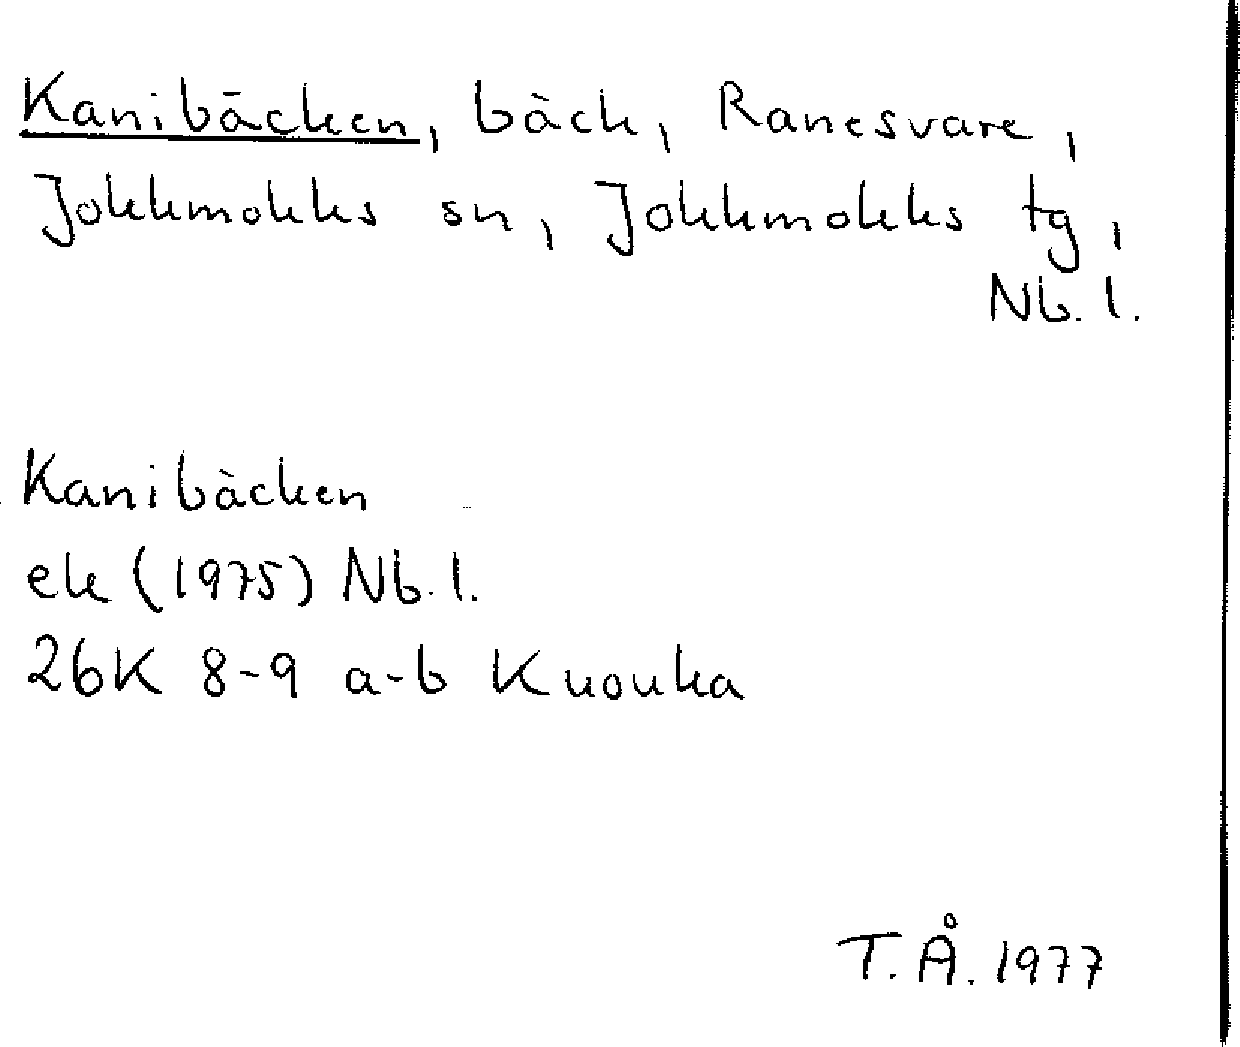 Kanibäcken, bäck, Ranesvare,
Jokkmokks sn, Jokkmokks tg,
Nb. l.
Kanibäcken
ek (1975) Nb. l.
26K 8-9 a-b Kuouka
T. Å. 1977